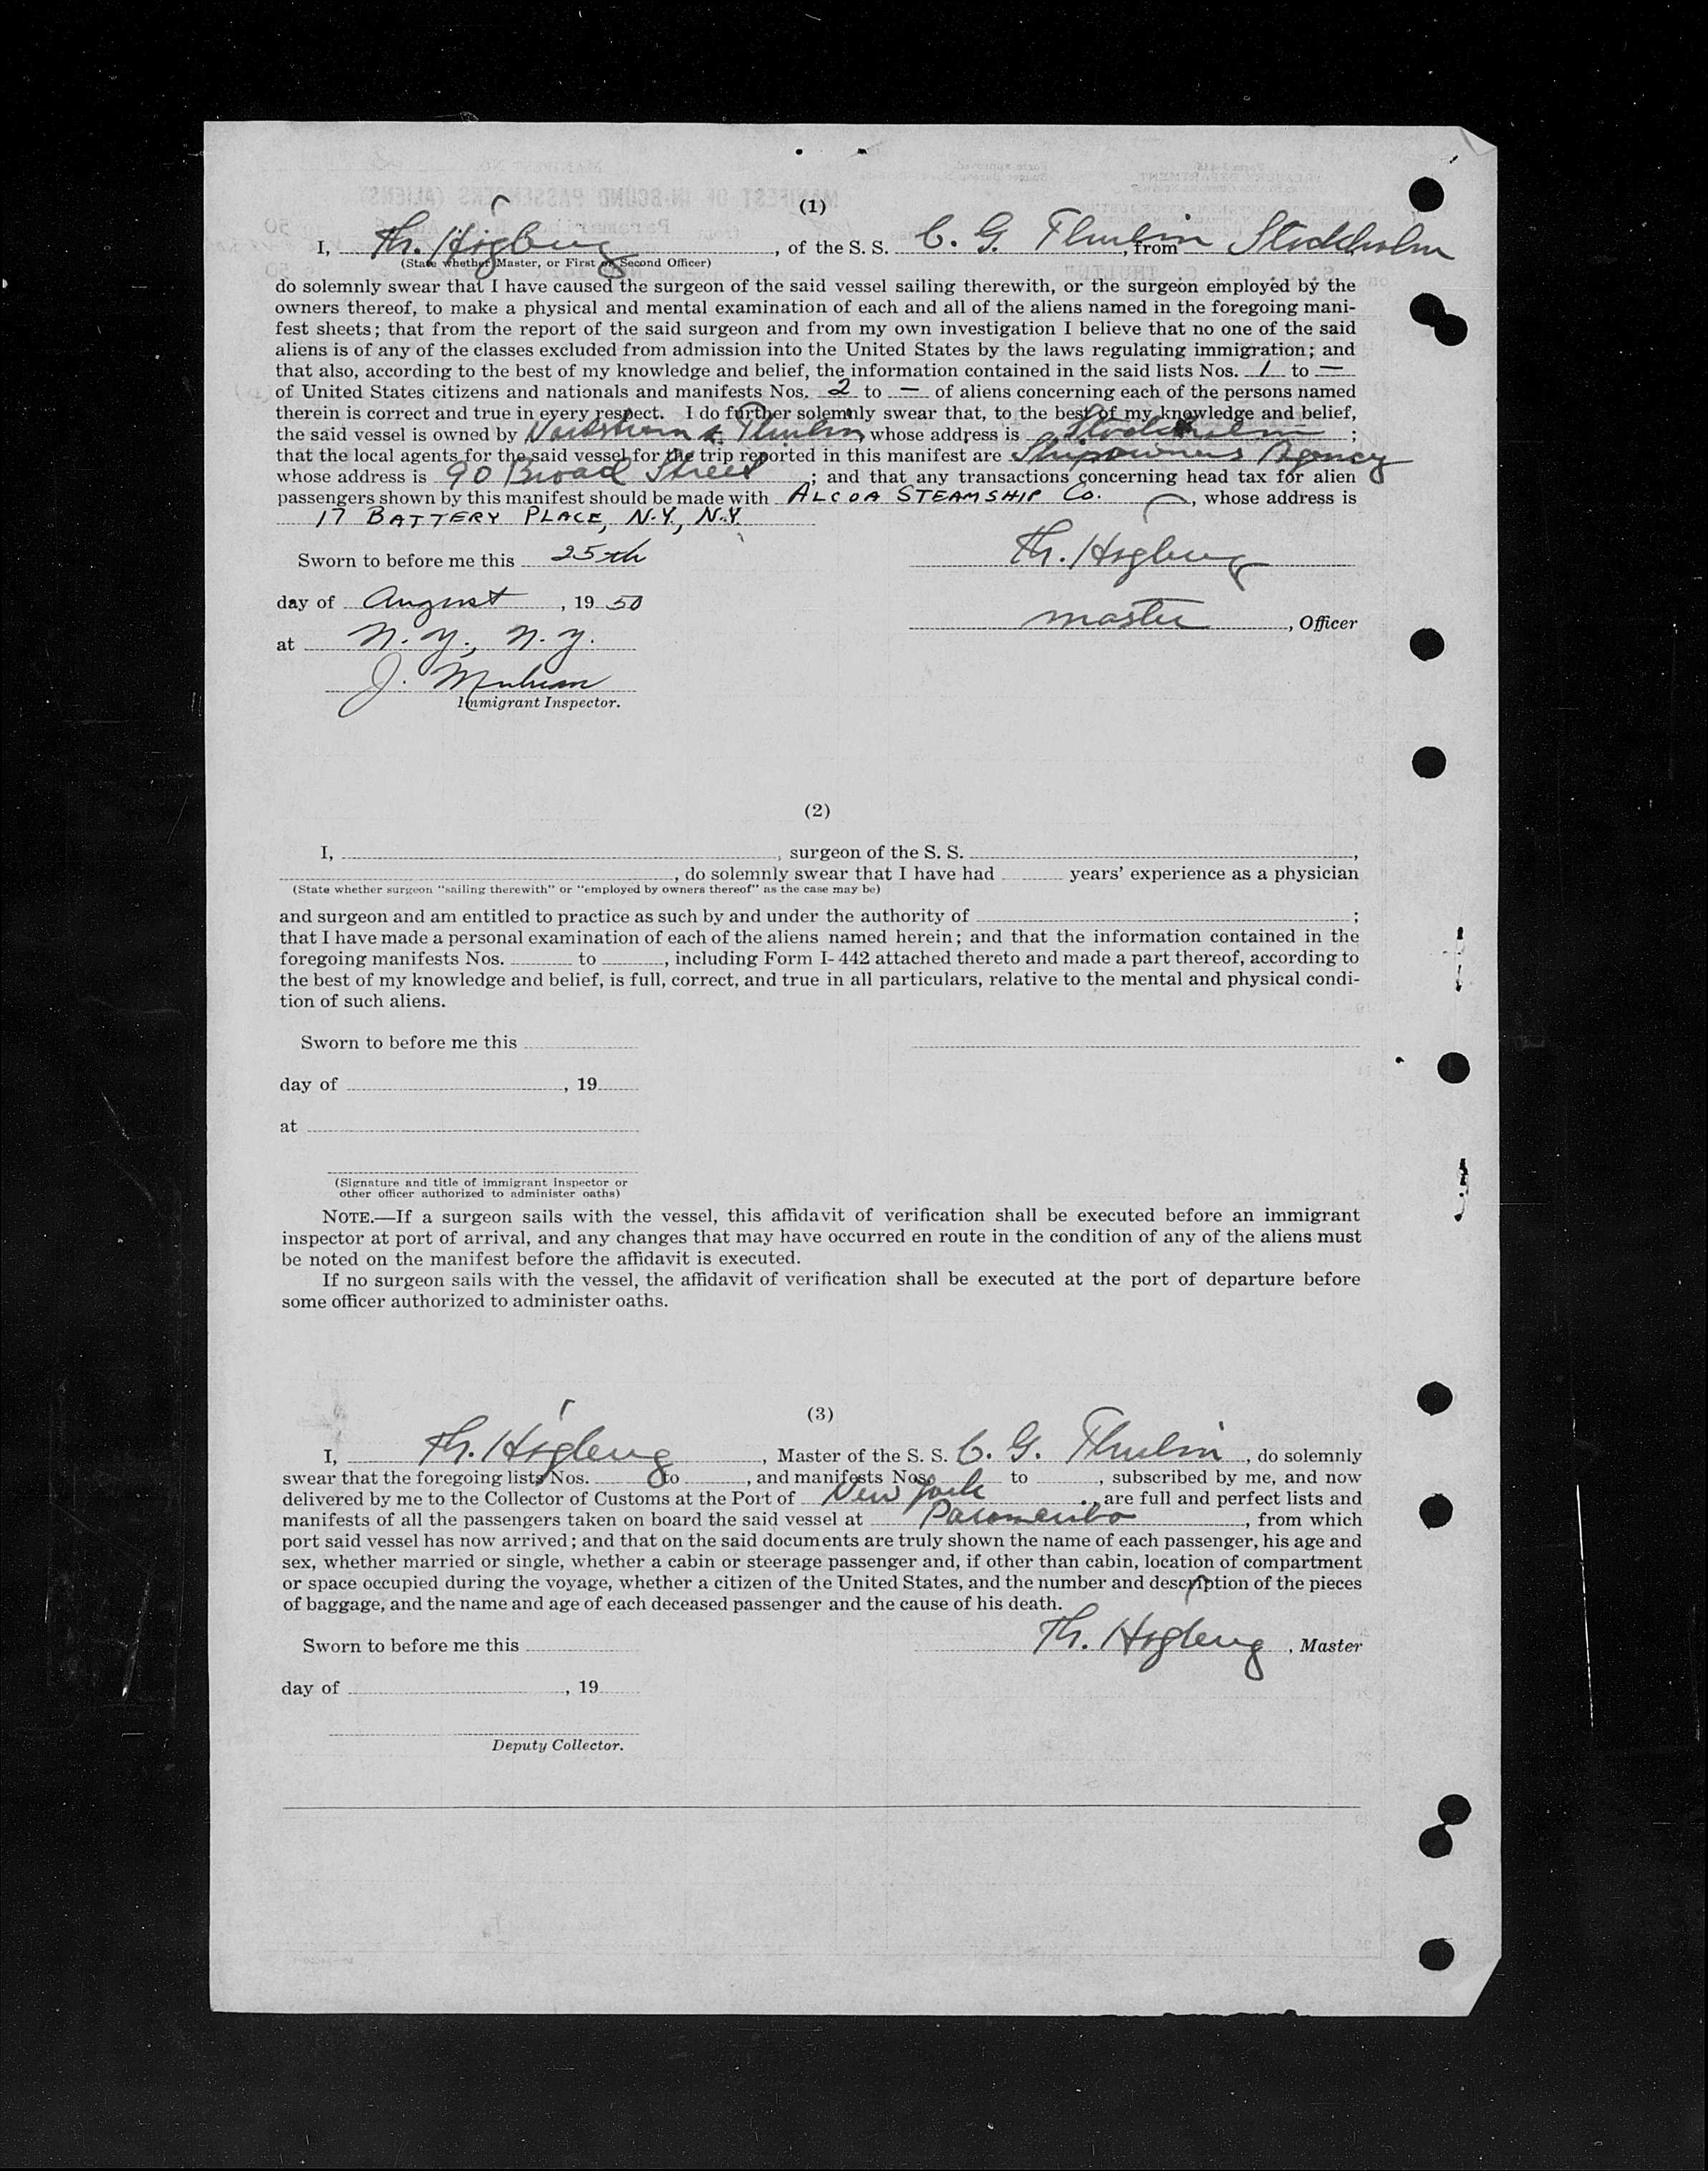 (1)
I, Th. Högberg, of the S. S. C. G. Thulin, from Stockholm
(State whether Master, or First or Second Officer)
do solemnly swear that I have caused the surgeon of the said vessel sailing therewith, or the surgeon employed by the
owners thereof, to make a physical and mental examination of each and all of the aliens named in the foregoing mani-
fest sheets; that from the report of the said surgeon and from my own investigation I believe that no one of the said
aliens is of any of the classes excluded from admission into the United States by the laws regulating immigration; and
that also, according to the best of my knowledge and belief, the information contained in the said lists Nos. 1 to —
of United States citizens and nationals and manifests Nos. 2 to — of aliens concerning each of the persons named
therein is correct and true in every respect. I do further solemnly swear that, to the best of my knowledge and belief,
the said vessel is owned by Nordström & Thulin, whose address is Stockholm ;
that the local agents for the said vessel for the trip reported in this manifest are Shipowners Agency
whose address is 90 Broad Street ; and that any transactions concerning head tax for alien
passengers shown by this manifest should be made with ALCOA STEAMSHIP CO. , whose address is
17 BATTERY PLACE, N.Y., N.Y.
Sworn to before me this 25th
Th. Högberg
day of August , 19 50
master , Officer
at N. Y., N. Y.
J.
Immigrant Inspector.
(2)
I, , surgeon of the S. S. ,
, do solemnly swear that I have had years' experience as a physician
(State whether surgeon "sailing therewith" or "employed by owners thereof" as the case may be)
and surgeon and am entitled to practice as such by and under the authority of ;
that I have made a personal examination of each of the aliens named herein; and that the information contained in the
foregoing manifests Nos. to , including Form I-442 attached thereto and made a part thereof, according to
the best of my knowledge and belief, is full, correct, and true in all particulars, relative to the mental and physical condi-
tion of such aliens.
Sworn to before me this
day of , 19
at
(Signature and title of immigrant inspector or
other officer authorized to administer oaths)
NOTE.—If a surgeon sails with the vessel, this affidavit of verification shall be executed before an immigrant
inspector at port of arrival, and any changes that may have occurred en route in the condition of any of the aliens must
be noted on the manifest before the affidavit is executed.
If no surgeon sails with the vessel, the affidavit of verification shall be executed at the port of departure before
some officer authorized to administer oaths.
(3)
I, Th. Högberg , Master of the S. S. C. G. Thulin , do solemnly
swear that the foregoing lists Nos. to , and manifests Nos. to , subscribed by me, and now
delivered by me to the Collector of Customs at the Port of New York , are full and perfect lists and
manifests of all the passengers taken on board the said vessel at Paramaribo , from which
port said vessel has now arrived; and that on the said documents are truly shown the name of each passenger, his age and
sex, whether married or single, whether a cabin or steerage passenger and, if other than cabin, location of compartment
or space occupied during the voyage, whether a citizen of the United States, and the number and description of the pieces
of baggage, and the name and age of each deceased passenger and the cause of his death.
Sworn to before me this
Th. Högberg , Master
day of , 19
Deputy Collector.